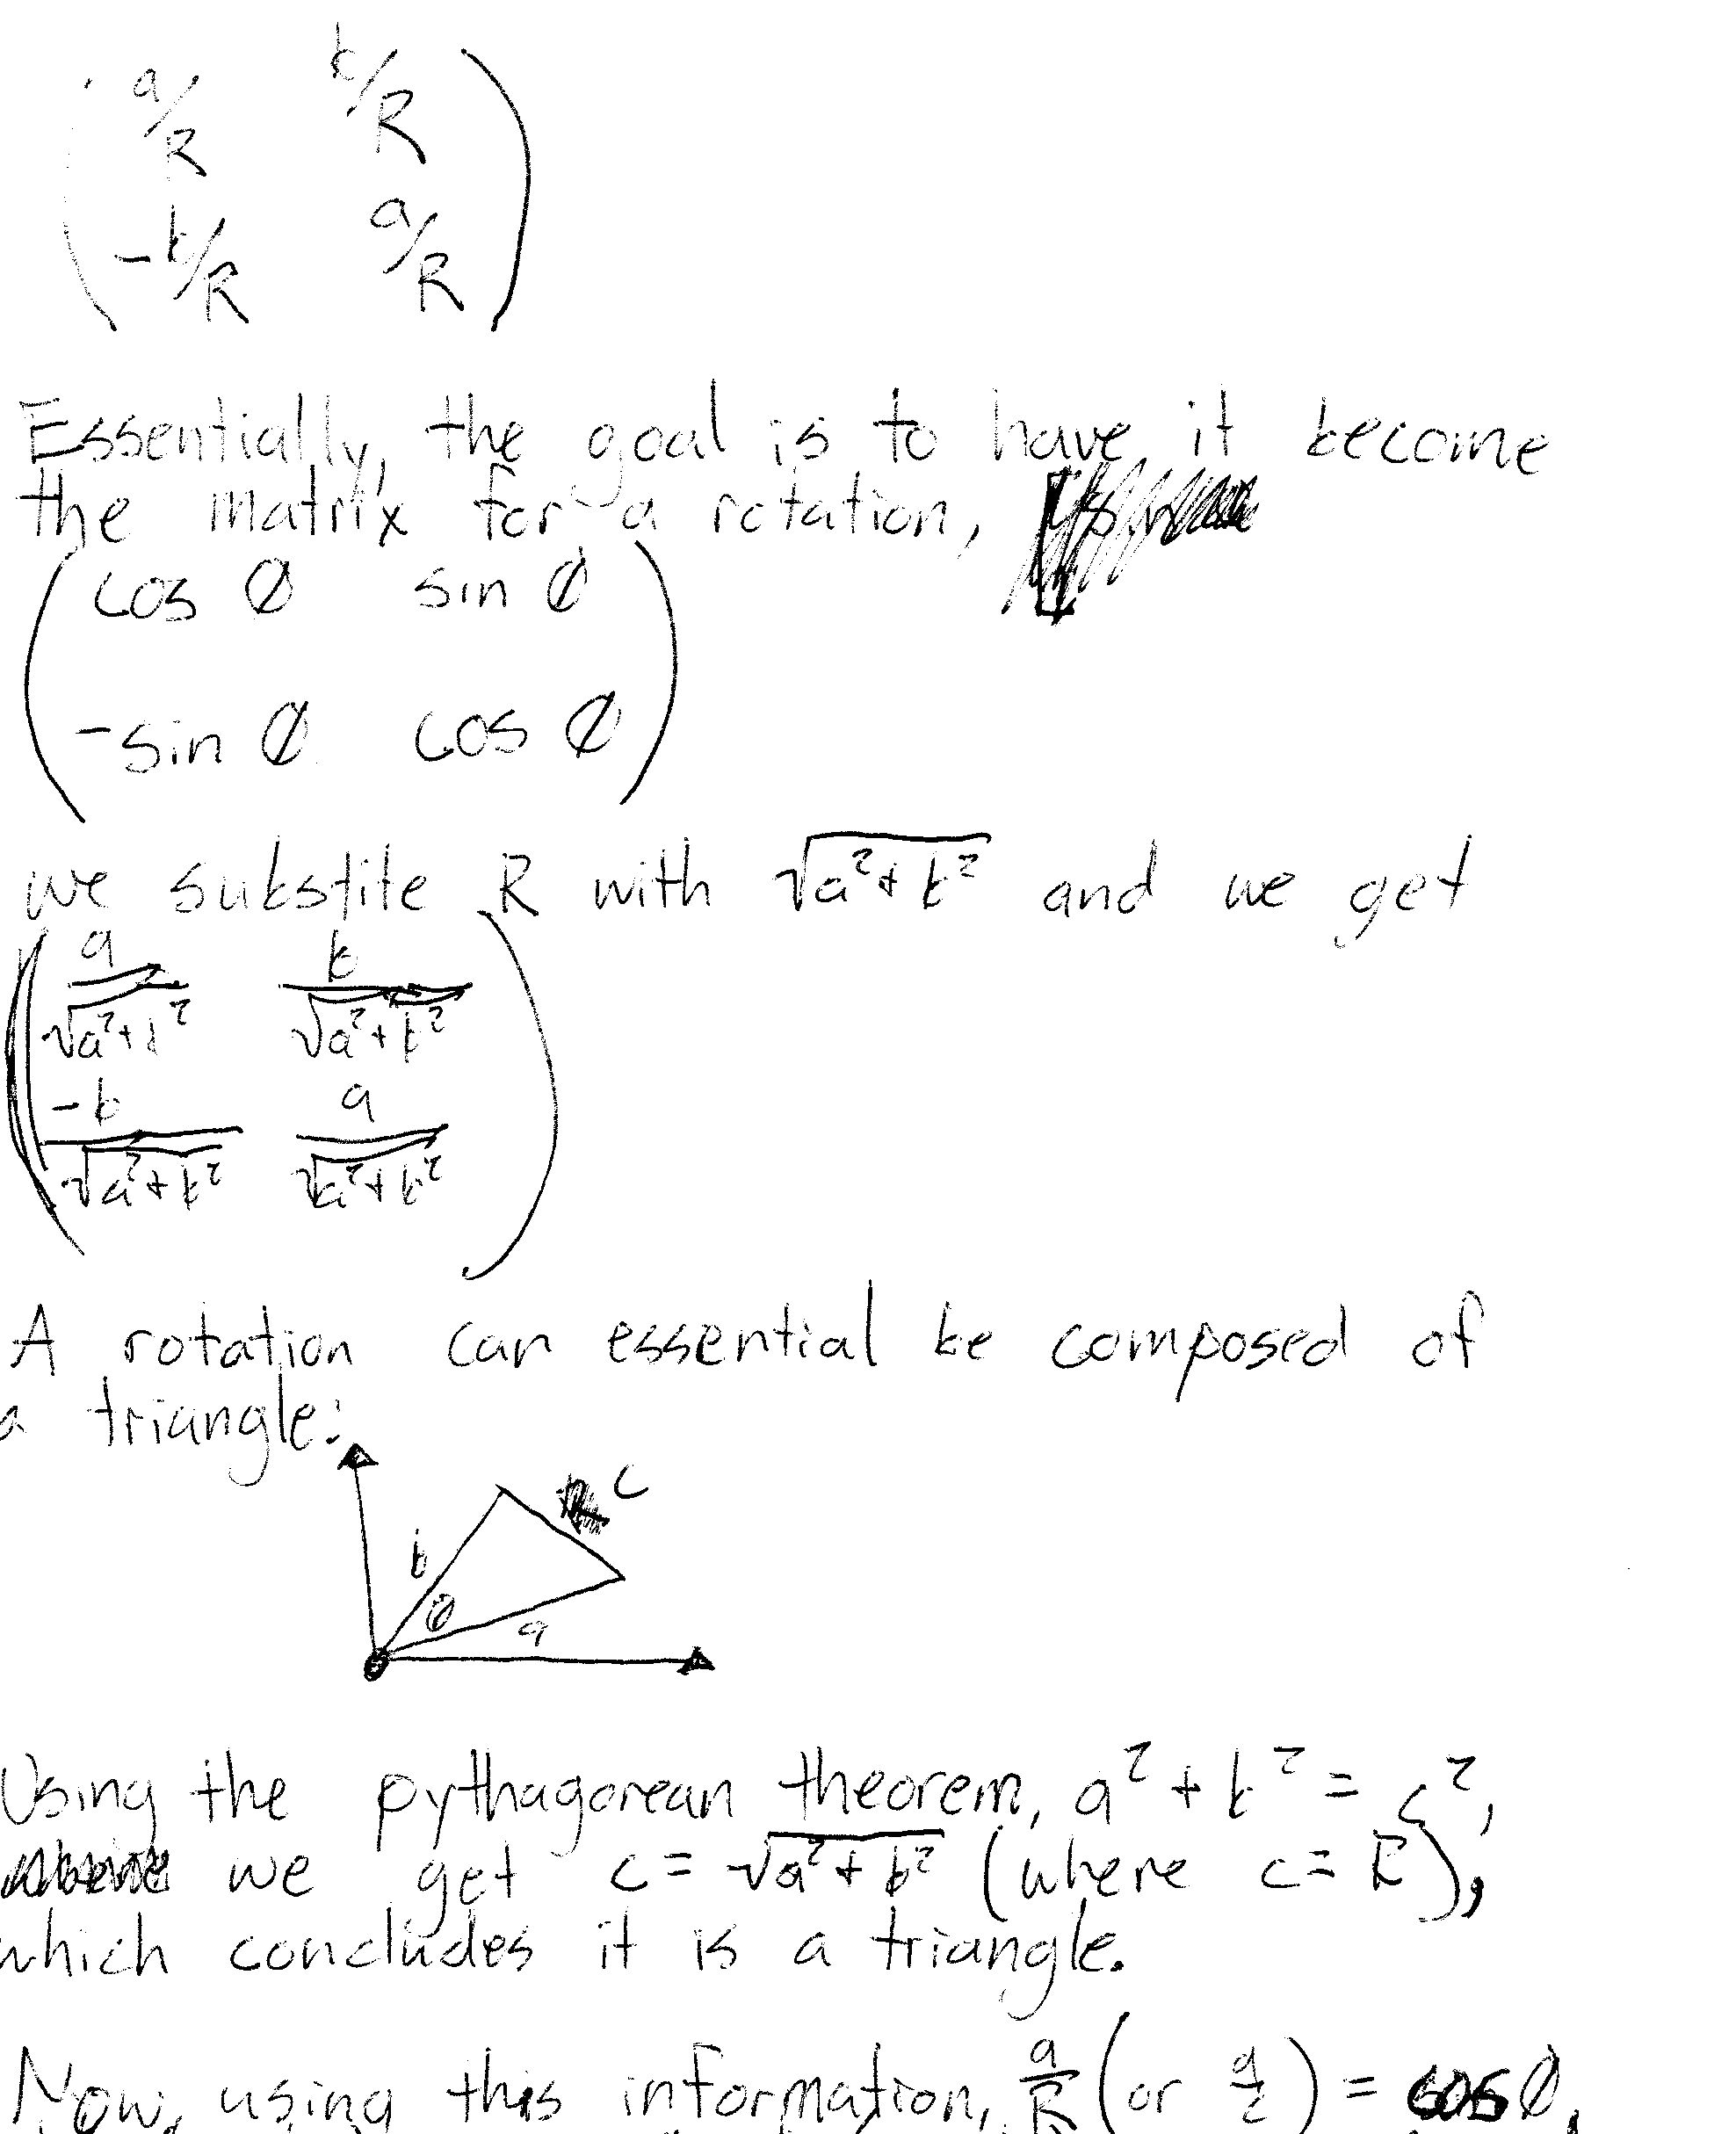 ( a/R b/R )
( -b/R a/R )
Essentially, the goal is to have it become
the matrix for a rotation,
( cos ∅ sin ∅ )
( -sin ∅ cos ∅ )
we substite R with √a²+b² and we get
( a/√a²+b² b/√a²+b² )
( -b/√a²+b² a/√a²+b² )
A rotation can essential be composed of
a triangle:
c
b
∅
a
Using the pythagorean theorem, a² + b² = c²,
we get c = √a²+b² (where c = R),
which concludes it is a triangle.
Now, using this information, a/R (or a/c) = cos ∅,